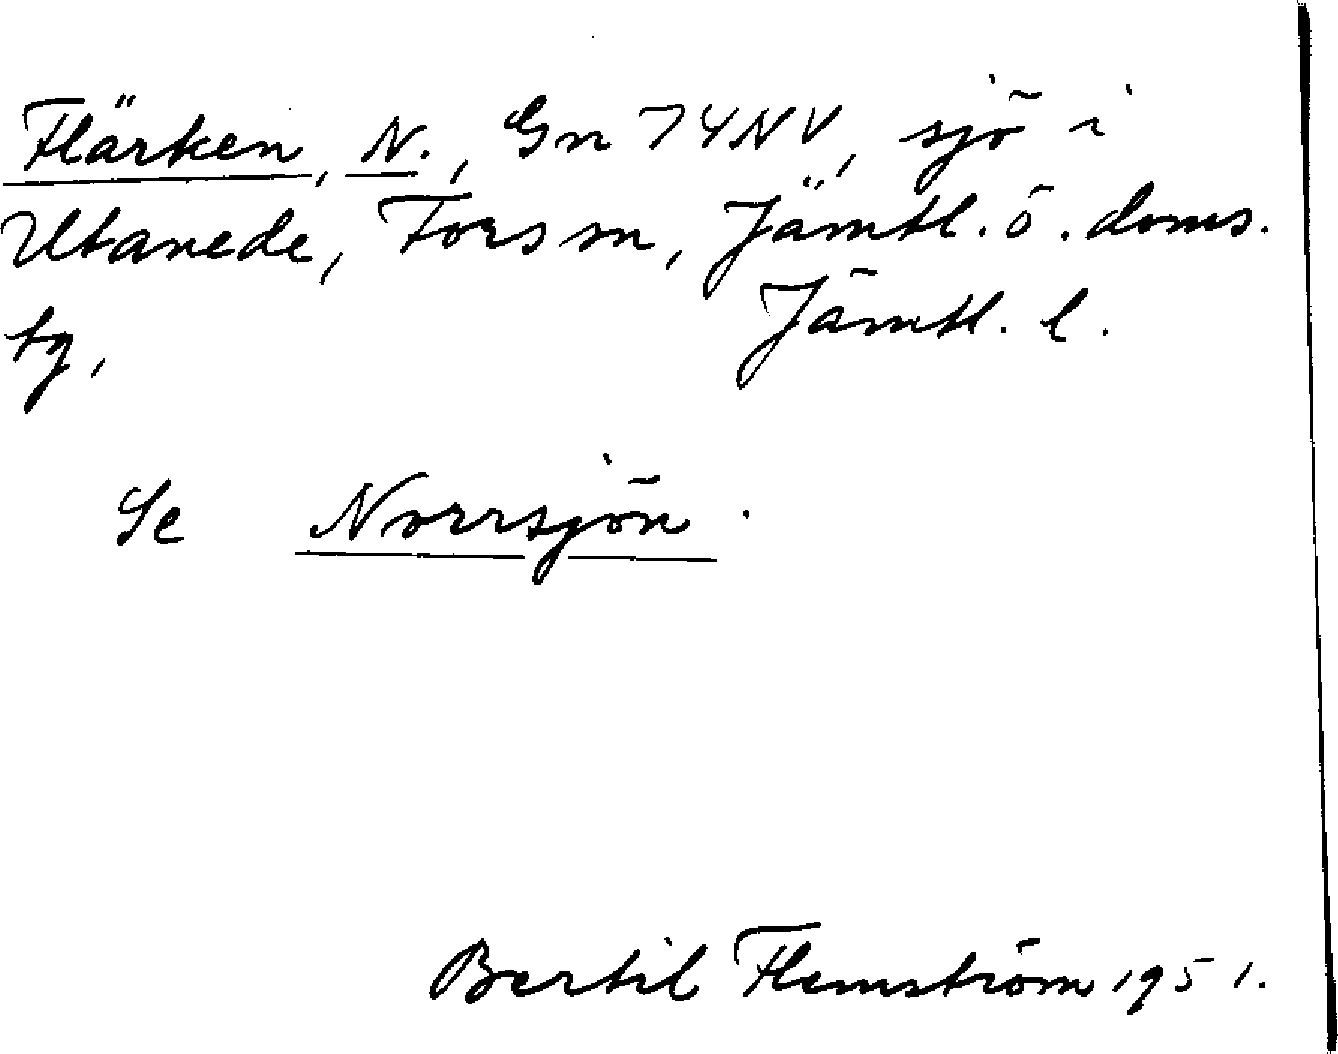 Flärken, N., Gn 74NV, sjö i
Utanede, Fors sn, Jämtl. ö. doms.
tg, Jämtl. l.
Se Norrsjön.
Bertil Flemström 1951.